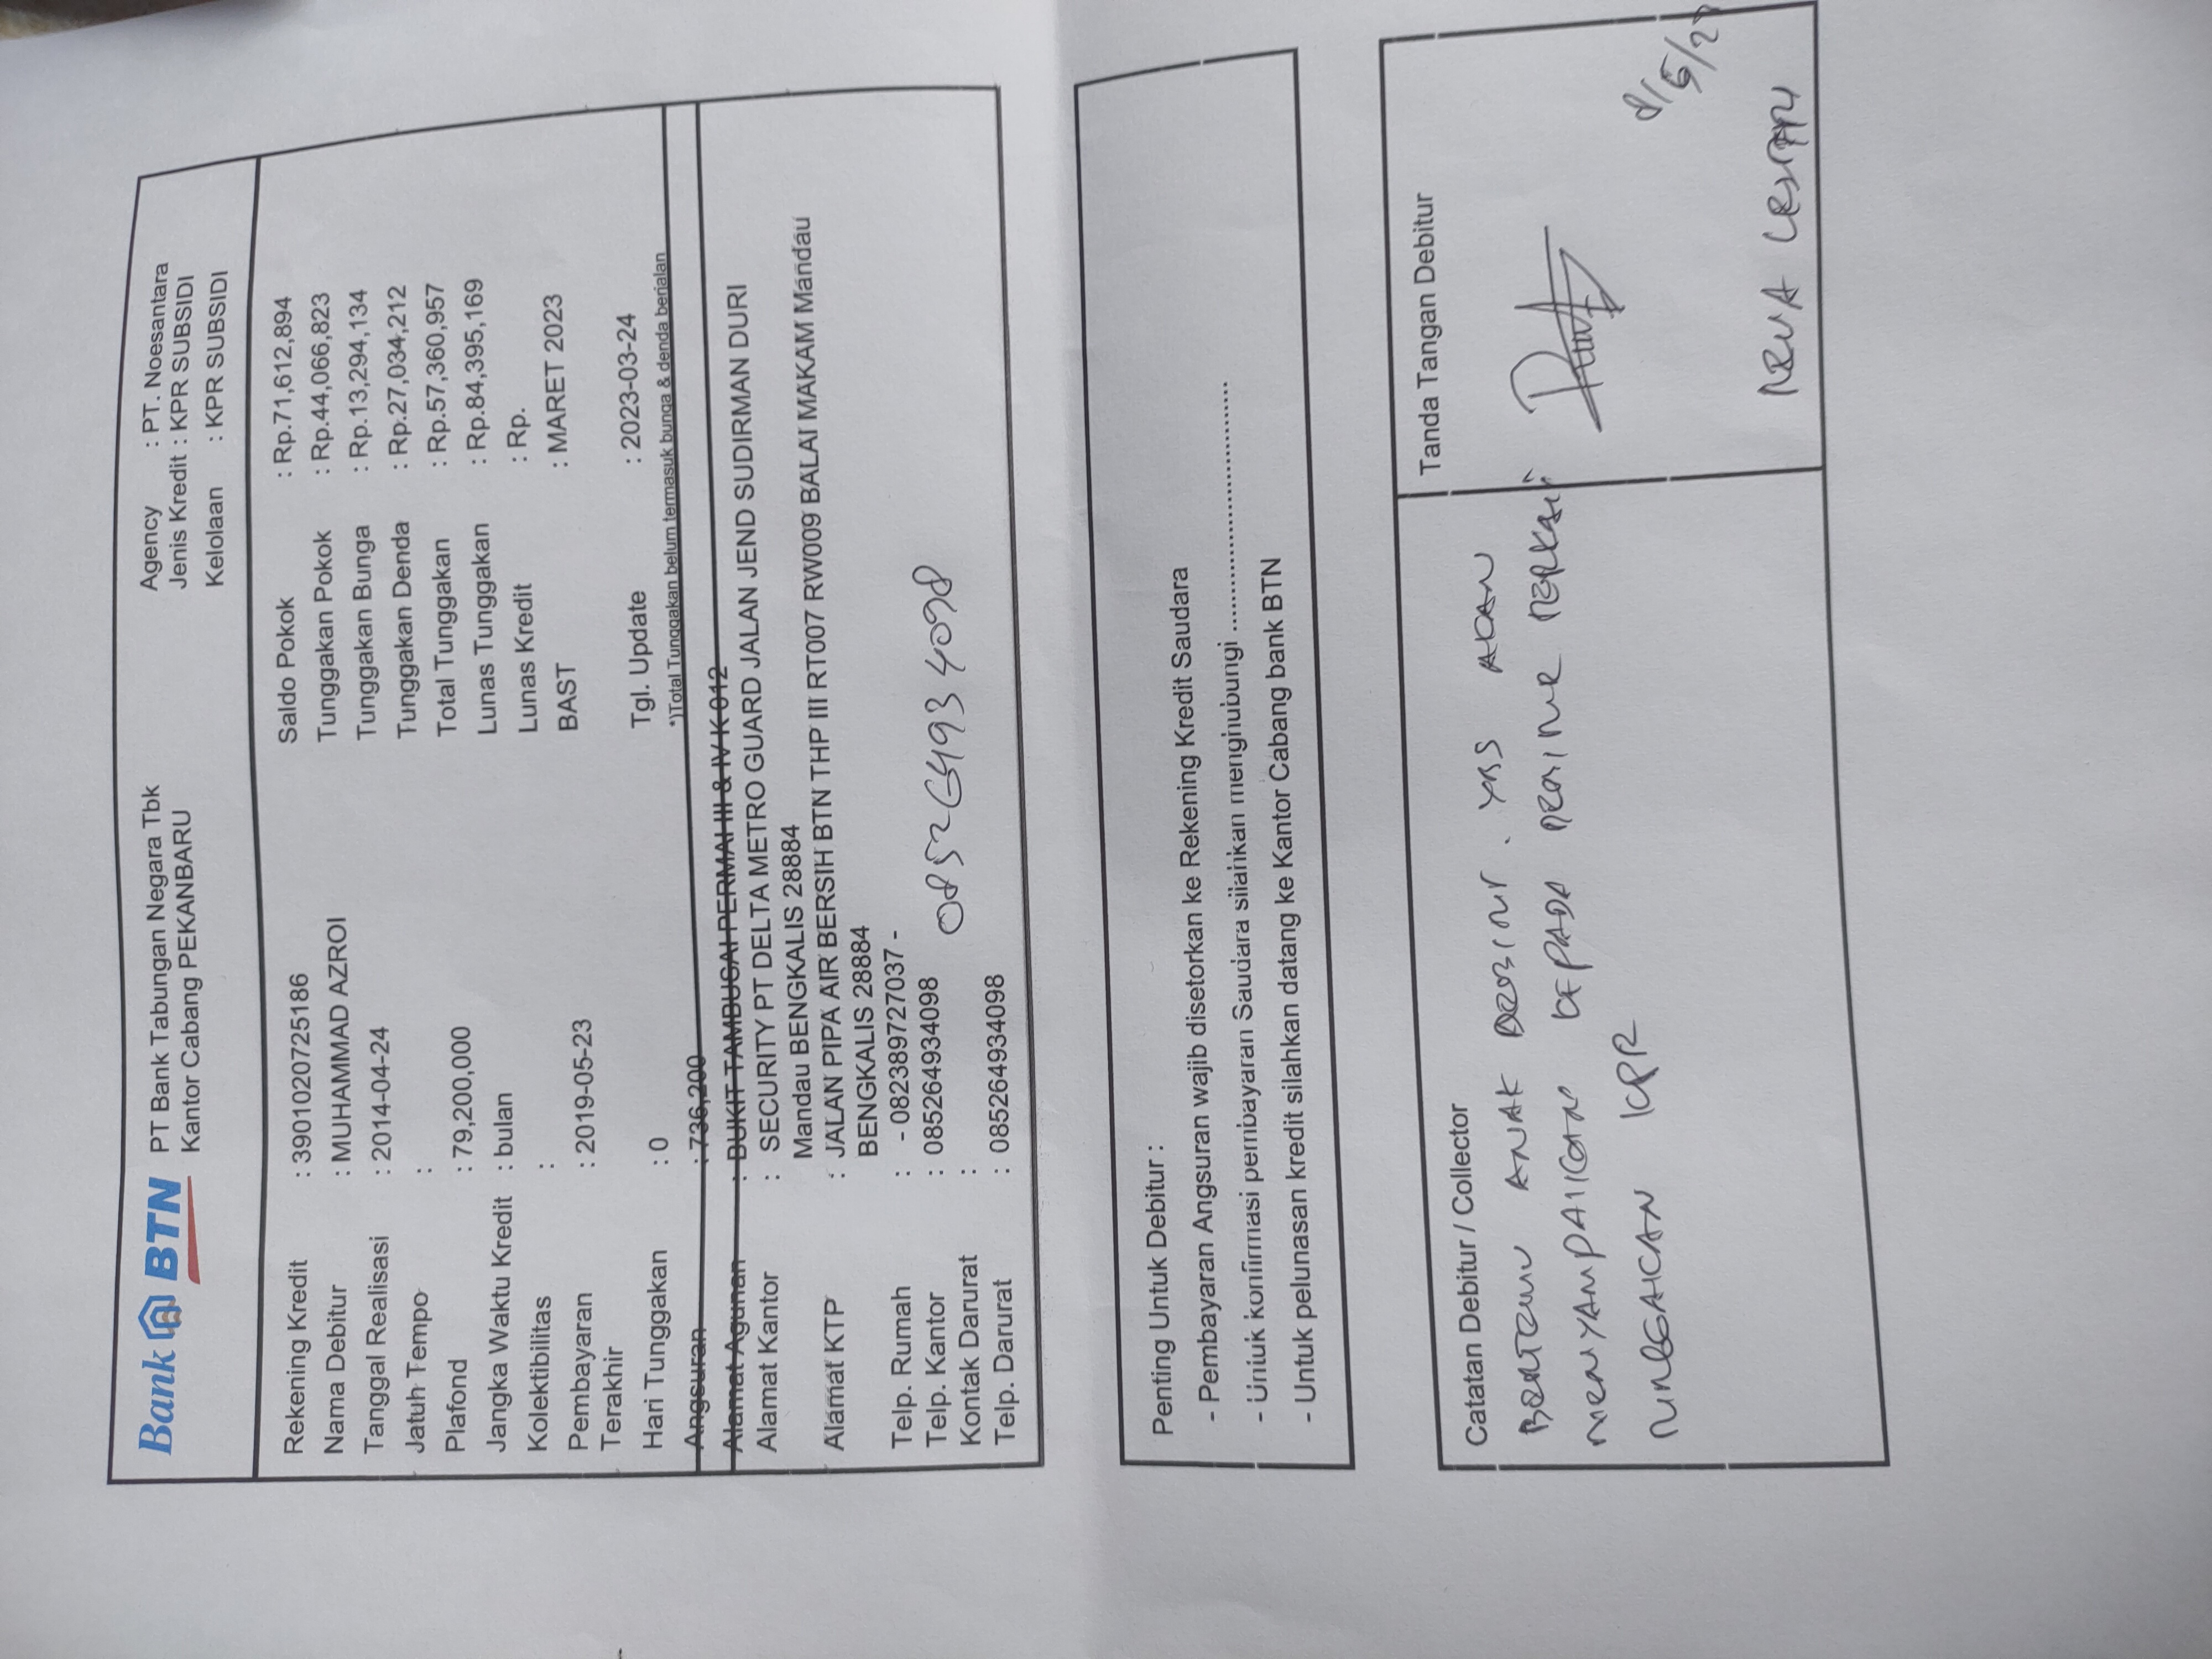 Bank BTN
PT Bank Tabungan Negara Tbk
Kantor Cabang PEKANBARU
Agency : PT. Noesantara
Jenis Kredit : KPR SUBSIDI
Kelolaan : KPR SUBSIDI
Rekening Kredit : 3901020725186
Nama Debitur : MUHAMMAD AZROI
Tanggal Realisasi : 2014-04-24
Jatuh Tempo :
Plafond : 79,200,000
Jangka Waktu Kredit : bulan
Kolektibilitas :
Pembayaran Terakhir : 2019-05-23
Hari Tunggakan : 0
Angsuran : 736,200
Saldo Pokok : Rp.71,612,894
Tunggakan Pokok : Rp.44,066,823
Tunggakan Bunga : Rp.13,294,134
Tunggakan Denda : Rp.27,034,212
Total Tunggakan : Rp.57,360,957
Lunas Tunggakan : Rp.84,395,169
Lunas Kredit : Rp.
BAST : MARET 2023
Tgl. Update : 2023-03-24
*)Total Tunggakan belum termasuk bunga & denda berjalan
Alamat Agunan : BUKIT TAMBUSAI PERMAI III & IV K 012
Alamat Kantor : SECURITY PT DELTA METRO GUARD JALAN JEND SUDIRMAN DURI
Mandau BENGKALIS 28884
Alamat KTP : JALAN PIPA AIR BERSIH BTN THP III RT007 RW009 BALAI MAKAM Mandau
BENGKALIS 28884
Telp. Rumah : - 082389727037 -
Telp. Kantor : 085264934098
085264934098
Kontak Darurat :
Telp. Darurat : 085264934098
Penting Untuk Debitur :
- Pembayaran Angsuran wajib disetorkan ke Rekening Kredit Saudara
- Untuk konfirmasi pembayaran Saudara silahkan menghubungi ........................................
- Untuk pelunasan kredit silahkan datang ke Kantor Cabang bank BTN
Catatan Debitur / Collector
BERTEMU ANAK DEBITUR. YBS AKAN
MENYAMPAIKAN KEPADA
TUNGGAKAN KPR
Tanda Tangan Debitur